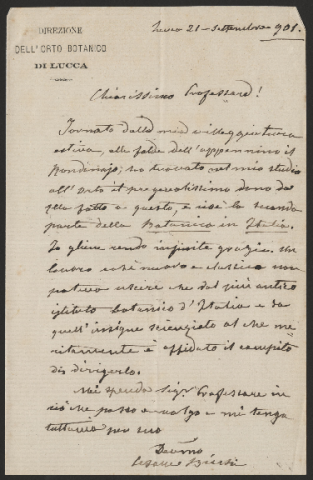 DIREZIONE
DELL'ORTO BOTANICO
DI LUCCA
Lucca 21 - Settembre 901.
Chiarissimo Professore!
Tornato dalla mia villeggiatura
estiva, alle falde dell'appennino il
Rondinajo, ho trovato nel mio studio
all'Orto il pregevolissimo dono da
Ella fatto a questo, e cioè la seconda
parte della Botanica in Italia.
Io gliene rendo infinite grazie. Un
lavoro così nuovo e classico non
poteva uscire che dal più antico
istituto botanico d'Italia e da
quell'insigne scienziato al che me-
ritamente è affidato il compito
di dirigerlo.
Mi spenda Sigr. Professore in
ciò che posso e valgo e mi tenga
tuttavia per suo
Devmo
Cesare Bicchi